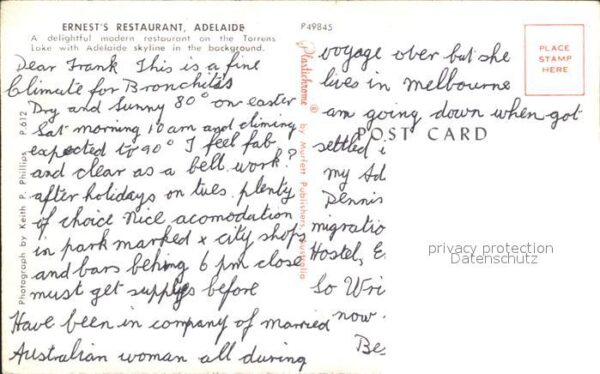 ERNEST'S RESTAURANT, ADELAIDE
A delightful modern restaurant on the Torrens
Lake with Adelaide skyline in the background.
P49845
Dear Frank This is a fine
Climate for Bronchitis
Dry and Sunny 80° on easter
Sat morning 10am and climing
expected to 90° I feel fab
and clear as a bell work?
after holidays on tues. plenty
of choice Nice acomodation
in park marked x city shops
and bars behing 6 pm close
must get supplys before
Have been in company of married
Australian woman all during
voyage over but she
lives in melbourne
am going down when got
settled
my Ad
Dennis
migratio
Hostel, E
So Wri
now.
Be
POST CARD
PLACE
STAMP
HERE
Photograph by Keith P. Phillips P.612
Plastichrome ® by Murfett Publishers, Australia
privacy protection
Datenschutz